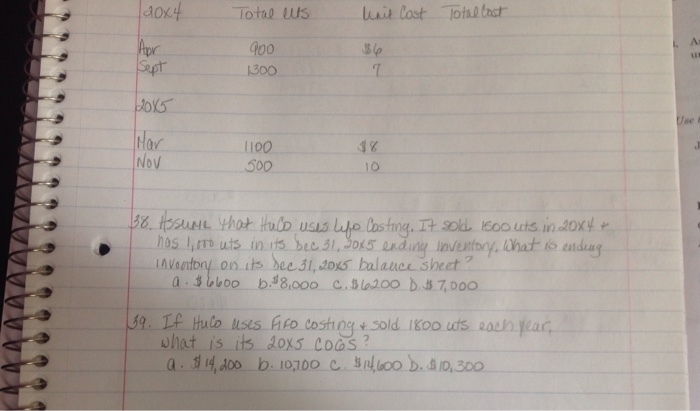 20X4 Total uts Unit Cost Total Cost
Apr 900 $6
Sept 1300 7
20X5
Mar 1100 $8
Nov 500 10
38. Assume that HuCo uses Lifo Costing. It sold 1500 uts in 20X4 +
has 1,000 uts in its Dec 31, 20X5 ending inventory. What is ending
inventory on its Dec 31, 20X5 balance sheet?
a. $6600 b. $8,000 c. $6200 D. $7,000
39. If HuCo uses FiFo costing + sold 1800 uts each year,
what is its 20X5 COGS?
a. $14,200 b. 10,700 c. $14,600 D. $10,300